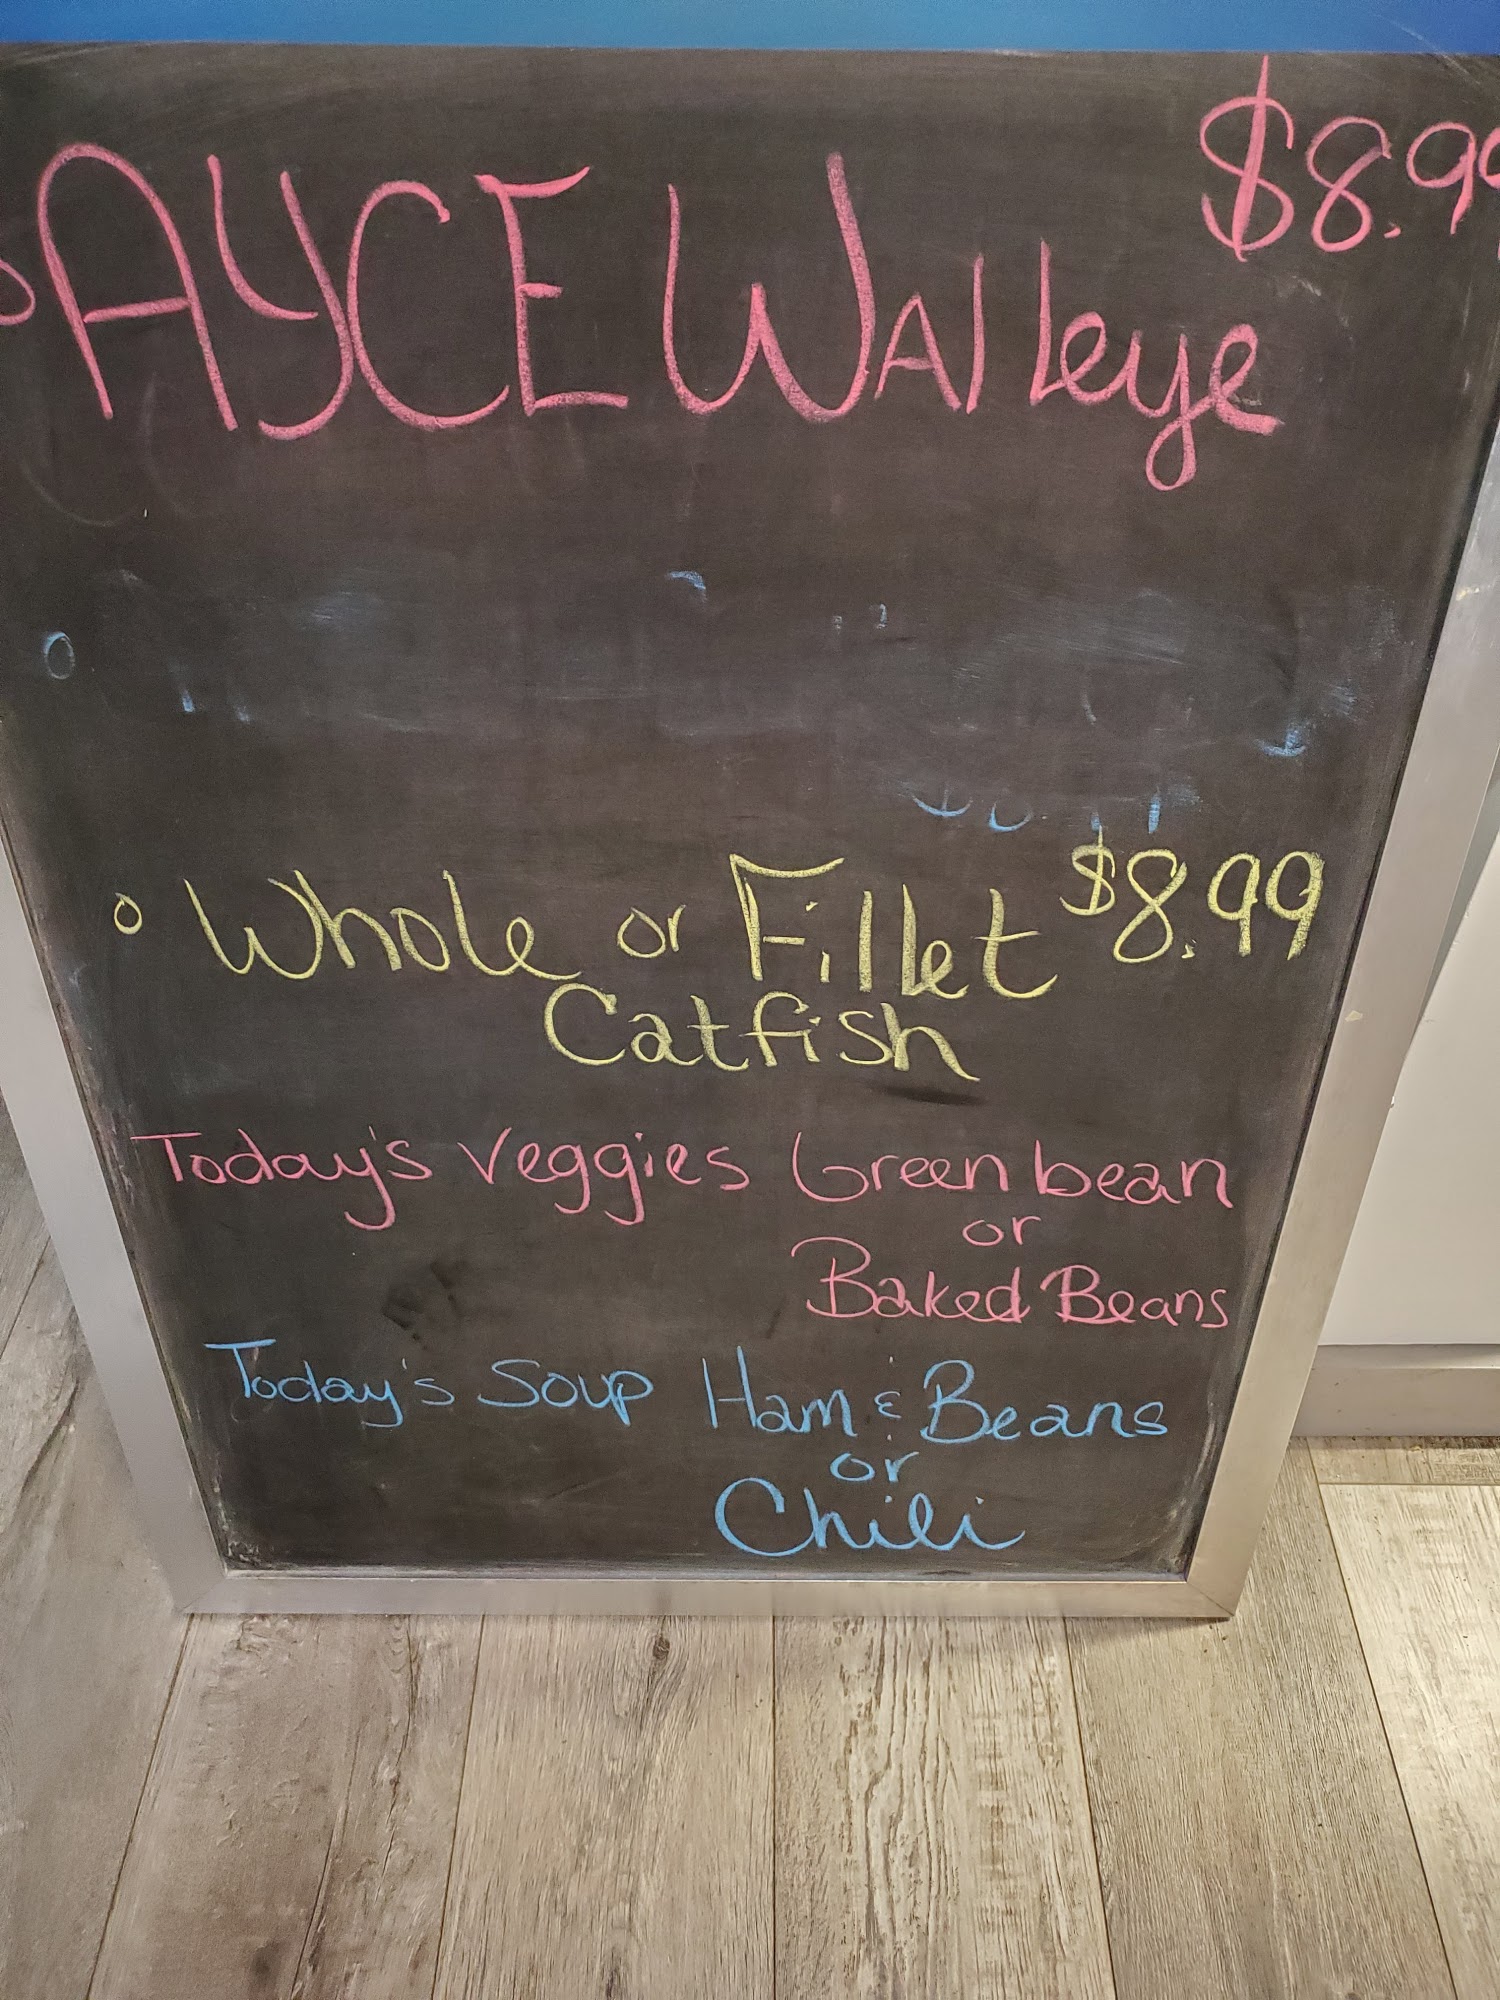 $8.99
AYCE Walleye
Whole or Fillet $8.99
Catfish
Today's Veggies Green bean
or
Baked Beans
Today's Soup Ham & Beans
or
Chili